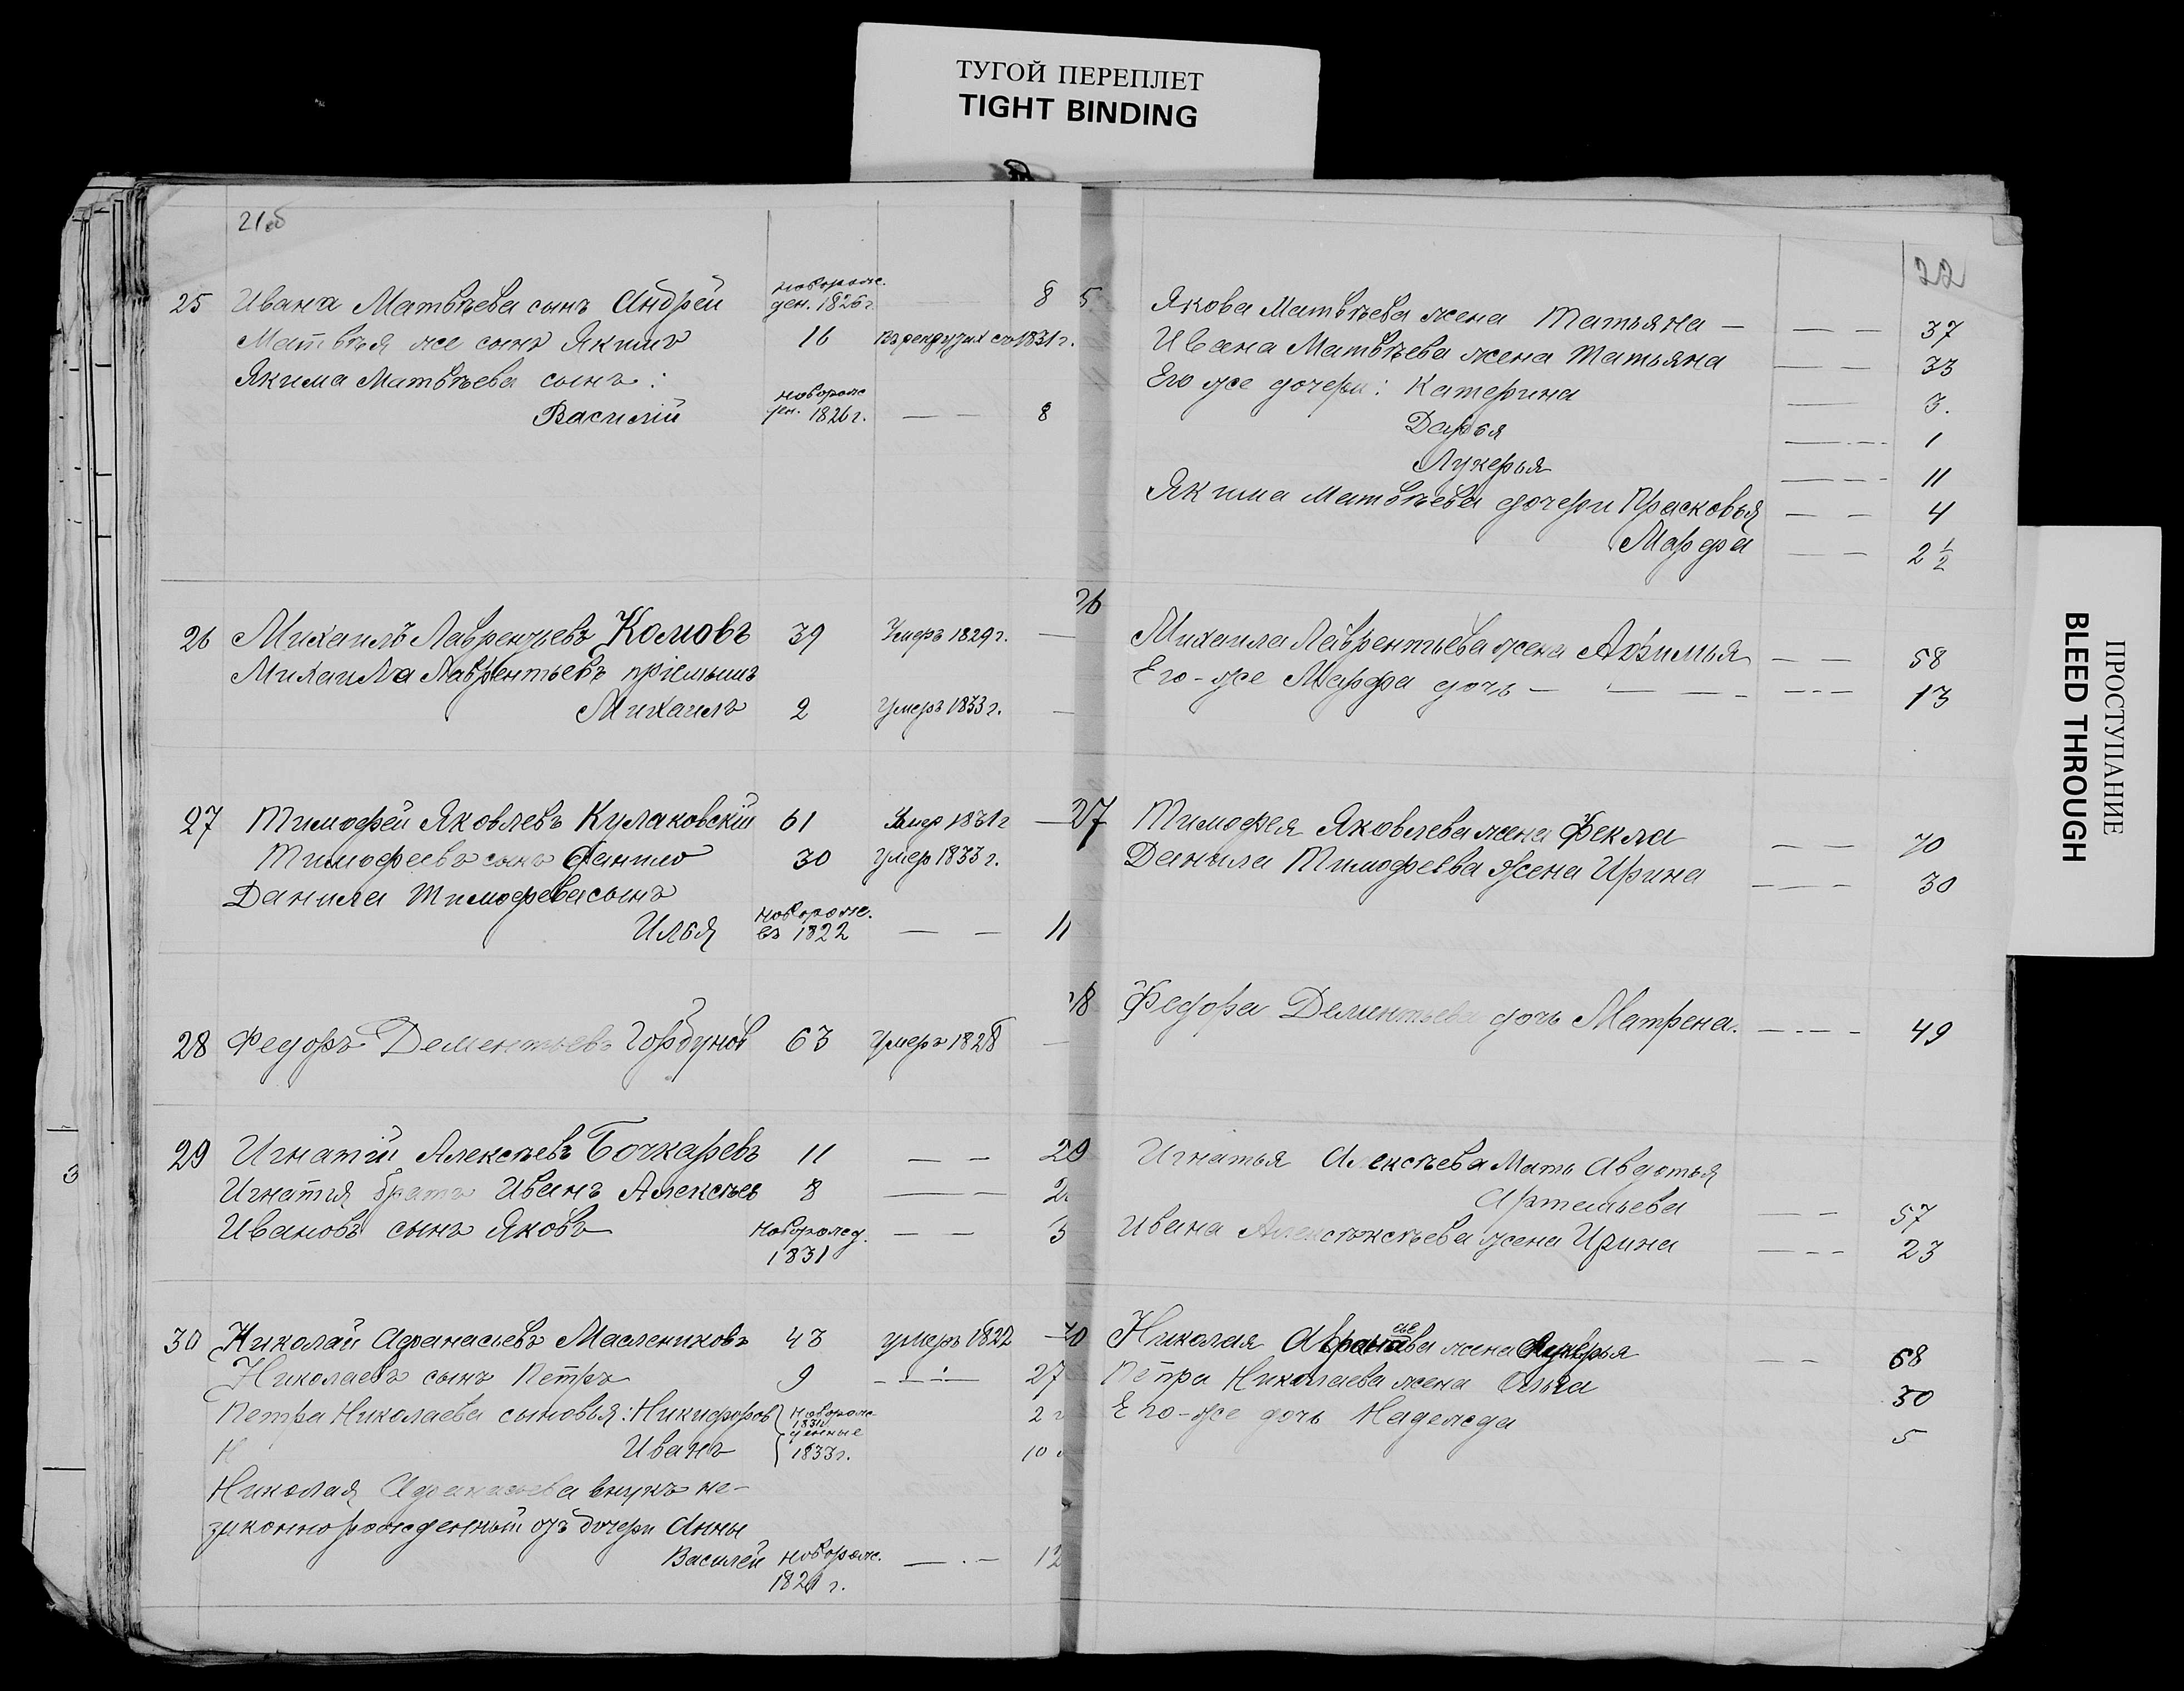 ТУГОЙ ПЕРЕПЛЕТ
TIGHT BINDING
21об
25 Ивана Матвѣева сынъ Андрей новорож. ден. 1826 г. — 8
Матвѣя же сынъ Якимъ 16 въ рекрутах съ 1831 г.
Якима Матвѣева сынъ:
Василій новорож ден. 1826 г. — — 8
26 Михаилъ Лаврентьевъ Комовъ 39 Умеръ 1829 г. —
Михаила Лаврентьевъ пріемышъ
Михаилъ 2 Умеръ 1833 г. —
27 Тимофей Яковлевъ Кулаковскій 61 Умер 1831 г —
Тимофеевъ сынъ Данило 30 Умер 1833 г.
Данила Тимофева сынъ
Илья новорож. въ 1822 — — 11
28 Федоръ Дементьевъ Горбунов 63 Умеръ 1828 —
29 Игнатій Алексѣевъ Бочкаревъ 11 — —
Игнатія братъ Иванъ Алексѣев 8 — —
Ивановъ сынъ Яковъ Новорожд. 1831 — — 3
30 Николай Афанасьевъ Маслениковъ 43 умеръ 1822 —
Николаевъ сынъ Петръ 9 — — 27
Петра Николаева сыновья: Никифоров новорож- 1831 г. 2
Н Иванъ денные 1833 г. 10
Николая Афанасьева внукъ не-
законнорожденный отъ дочери Анны
Василей новорож. 1821 г. — — 12
22
5 Якова Матвѣева жена Татьяна — — — 37
Ивана Матвѣева жена Татьяна — — 33
Его же дочери: Катерина — 3.
Дарья — — 1
Лукерья — — 11
Якима Матвѣева дочери Прасковья — — 4
Марфа — — 2 1/2
26 Михаила Лаврентьева жена Афимья — — 58
Его-же Марфа дочь — — — — 13
27 Тимофея Яковлева жена Фекла — — 70
Данила Тимофеева жена Ирина — — 30
8 Федора Дементьева дочь Матрена. — — 49
29 Игнатья Алексѣева Мать Авдотья
Артемьева — — 57
Ивана жена Ирина — — 23
30 Николая жена Лукерья — — 68
Петра Николаева жена Ольга 30
Его-же дочь Надежда 5
ПРОСТУПАНИЕ
BLEED THROUGH
3